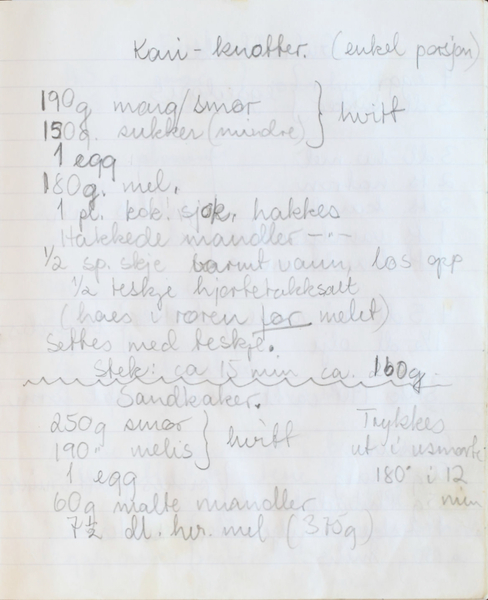 Kari-knotter. (enkel porsjon)
190g marg/smør } hvitt
150g. sukker (mindre)
1 egg
180g. mel.
1 pl. kok. sjok. hakkes
Hakkede mandler -"-
1/2 sp. skje varmt vann, løs opp
1/2 teskje hjortetakksalt
(haes i røren før melet)
Settes med teskje.
Stek: ca 15 min ca. 160g.
Sandkaker.
250g smør } hvitt
190" melis
1 egg
60g malte mandler
7 1/2 dl. hv. mel (375g)
Trykkes
ut i usmurte
180° i 12
min